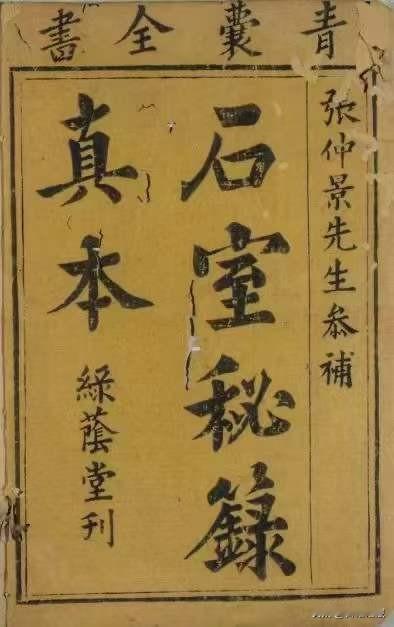 青囊全書
張仲景先生叅補
石室秘錄
真本
綠蔭堂刊